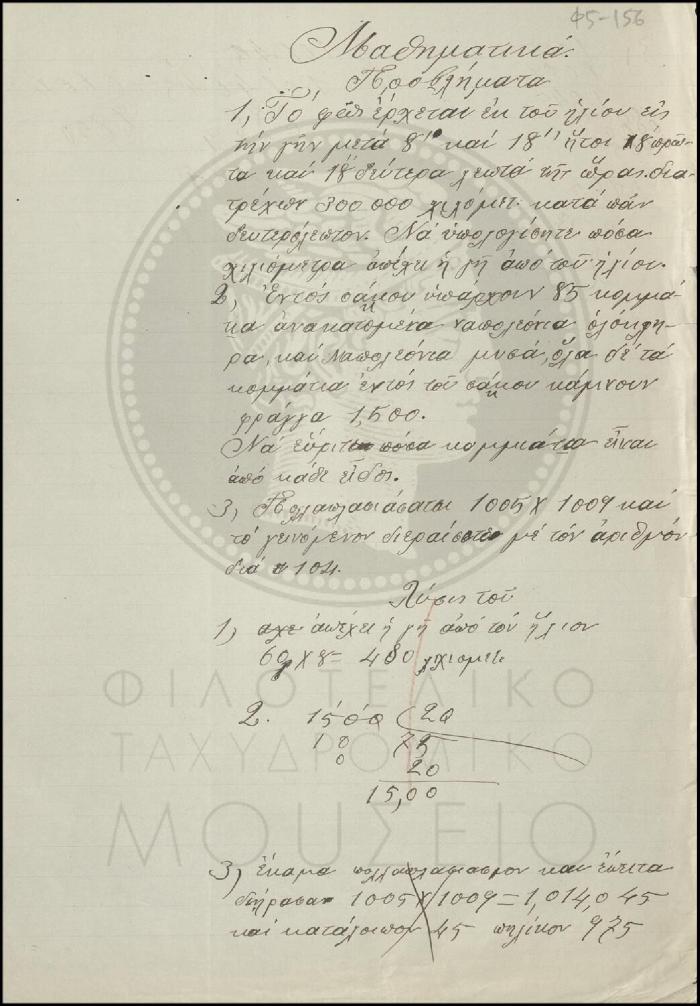 Φ5-156
Μαθηματικά.
Προβλήματα
1, Τό φῶς ἔρχεται ἐκ τοῦ ἡλίου εἰς
τήν γῆν μετά 8' καί 18'' ἤτοι 8 πρῶ-
τα καί 18 δεύτερα λεπτά τῆς ὥρας δια-
τρέχων 300000 χιλιόμετ. κατά πᾶν
δευτερόλεπτον. Νά ὑπολογίσητε πόσα
χιλιόμετρα ἀπέχει ἡ γῆ ἀπό τοῦ ἡλίου.
2, Ἐντός σάκου ὑπάρχουν 85 κομμά-
τια ἀνακατομένα ναπολεόνια ὁλόκλη-
ρα, καί Ναπολεόνια μυσά, ὅλα δέ τά
κομμάτια ἐντός τοῦ σάκου κάμνουν
φράγγα 1,500.
Νά εὕριτε πόσα κομμάτια εἶναι
ἀπό κάθε εἶδος.
3, Πολλαπλασιάσατε 1005 Χ 1009 καί
τό γεινόμενον διεραίσατε μέ τόν ἀριθμόν
διά 104.
Λύσις τοῦ
1, ἀπέχει ἡ γῆ ἀπό τόν ἥλιον
60 Χ 8 = 480
2. 1500 20
10 75
0 20
15,00
3, ἔκαμα πολλαπλασιασμον και ἔπειτα
διήρασα 1005 Χ 1009 = 1,014,045
και κατάλοιπόν 45 πηλίκον 975
ΦΙΛΟΤΕΛΙΚΟ
ΤΑΧΥΔΡΟΜΙΚΟ
ΜΟΥΣΕΙΟ